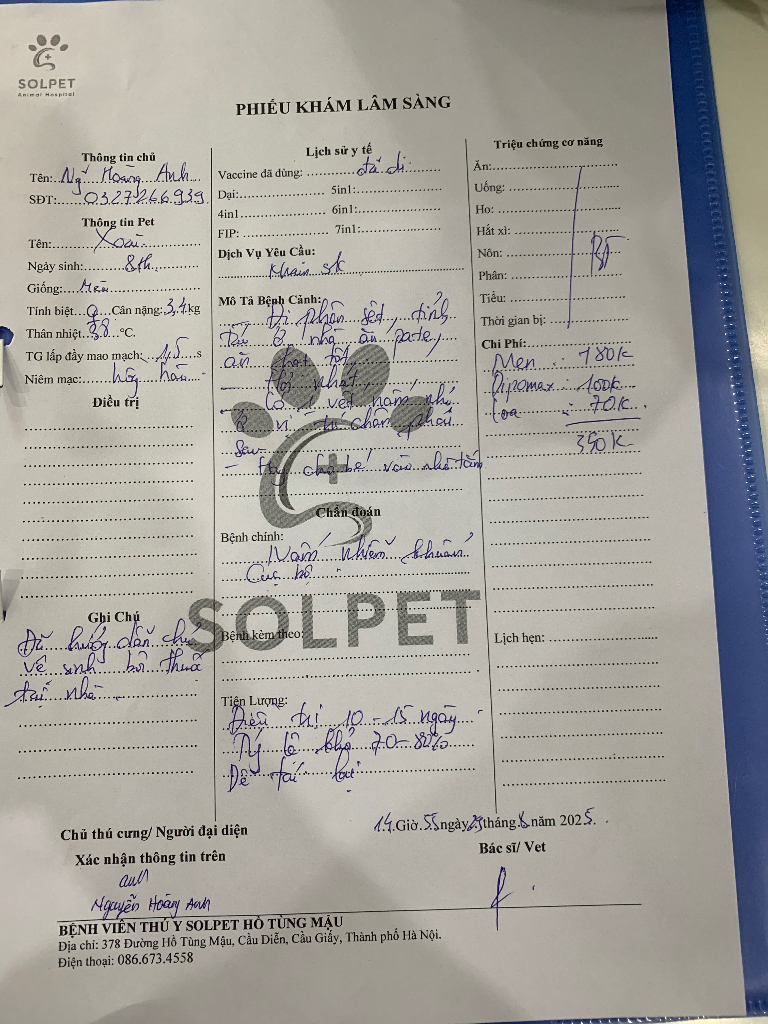 SOLPET
Animal Hospital
PHIẾU KHÁM LÂM SÀNG
Thông tin chủ
Tên: Ng~ Hoàng Anh
SĐT: 0327266939
Thông tin Pet
Tên: Xoài
Ngày sinh: 8th
Giống: Mèo
Tính biệt ♀ Cân nặng: 3,4 kg
Thân nhiệt: 38 °C.
TG lấp đầy mao mạch: 1,5 s
Niêm mạc: hồng hào
Điều trị
Ghi Chú
Đã hướng dẫn chủ
vệ sinh bôi thuốc
tại nhà
Lịch sử y tế
Vaccine đã dùng:
Dại: 5in1:
4in1 6in1:
FIP: 7in1:
Dịch Vụ Yêu Cầu:
Khám sk
Mô Tả Bệnh Cảnh:
- Đi phân sệt, tỉnh
táo, ở nhà ăn pate,
ăn hạt tốt,
- Hơi nhát,
- Có 1 vết nấm nhỏ
ở vị trí chân phải
sau
- Hay cho bé vào nhà tắm
Chẩn đoán
Bệnh chính:
Nấm, nhiễm khuẩn
Cục bộ
Bệnh kèm theo:
Tiên Lượng:
Điều trị 10-15 ngày
Tỷ lệ khỏi 70-80%
Dễ tái lại
Triệu chứng cơ năng
Ăn:
Uống:
Ho:
Hắt xì:
Nôn: BT
Phân:
Tiểu:
Thời gian bị:
Chi Phí:
Men : 180k
Dipomax : 100k
Loa : 70k
350k
Lịch hẹn:
14 Giờ 55 ngày 29 tháng 8 năm 2025
Chủ thú cưng/ Người đại diện
Xác nhận thông tin trên
anh
Nguyễn Hoàng Anh
Bác sĩ/ Vet
SOLPET
BỆNH VIÊN THÚ Y SOLPET HỒ TÙNG MẬU
Địa chỉ: 378 Đường Hồ Tùng Mậu, Cầu Diễn, Cầu Giấy, Thành phố Hà Nội.
Điện thoại: 086.673.4558